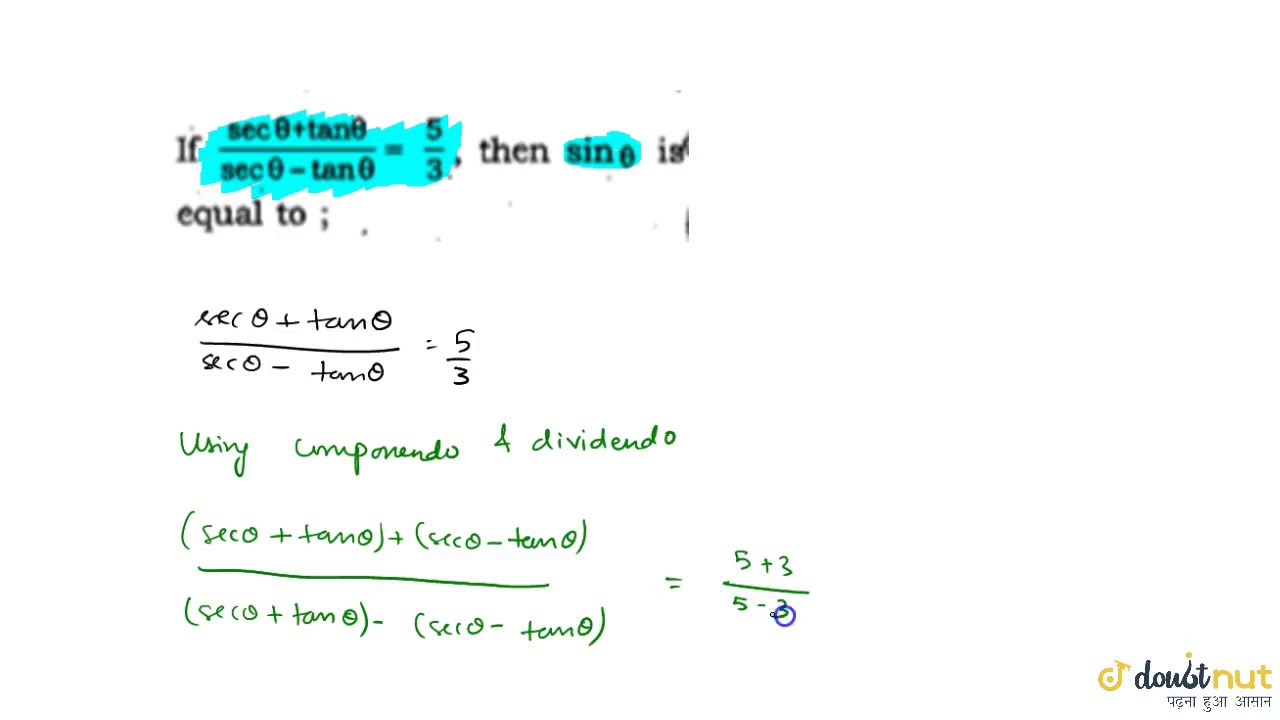 If secθ+tanθ/secθ-tanθ = 5/3, then sinθ is
equal to ;
secθ + tanθ/secθ - tanθ = 5/3
Using componendo & dividendo
(secθ + tanθ) + (secθ - tanθ)/(secθ + tanθ) - (secθ - tanθ) = 5 + 3/5 - 3
doubtnut
पढ़ना हुआ आसान